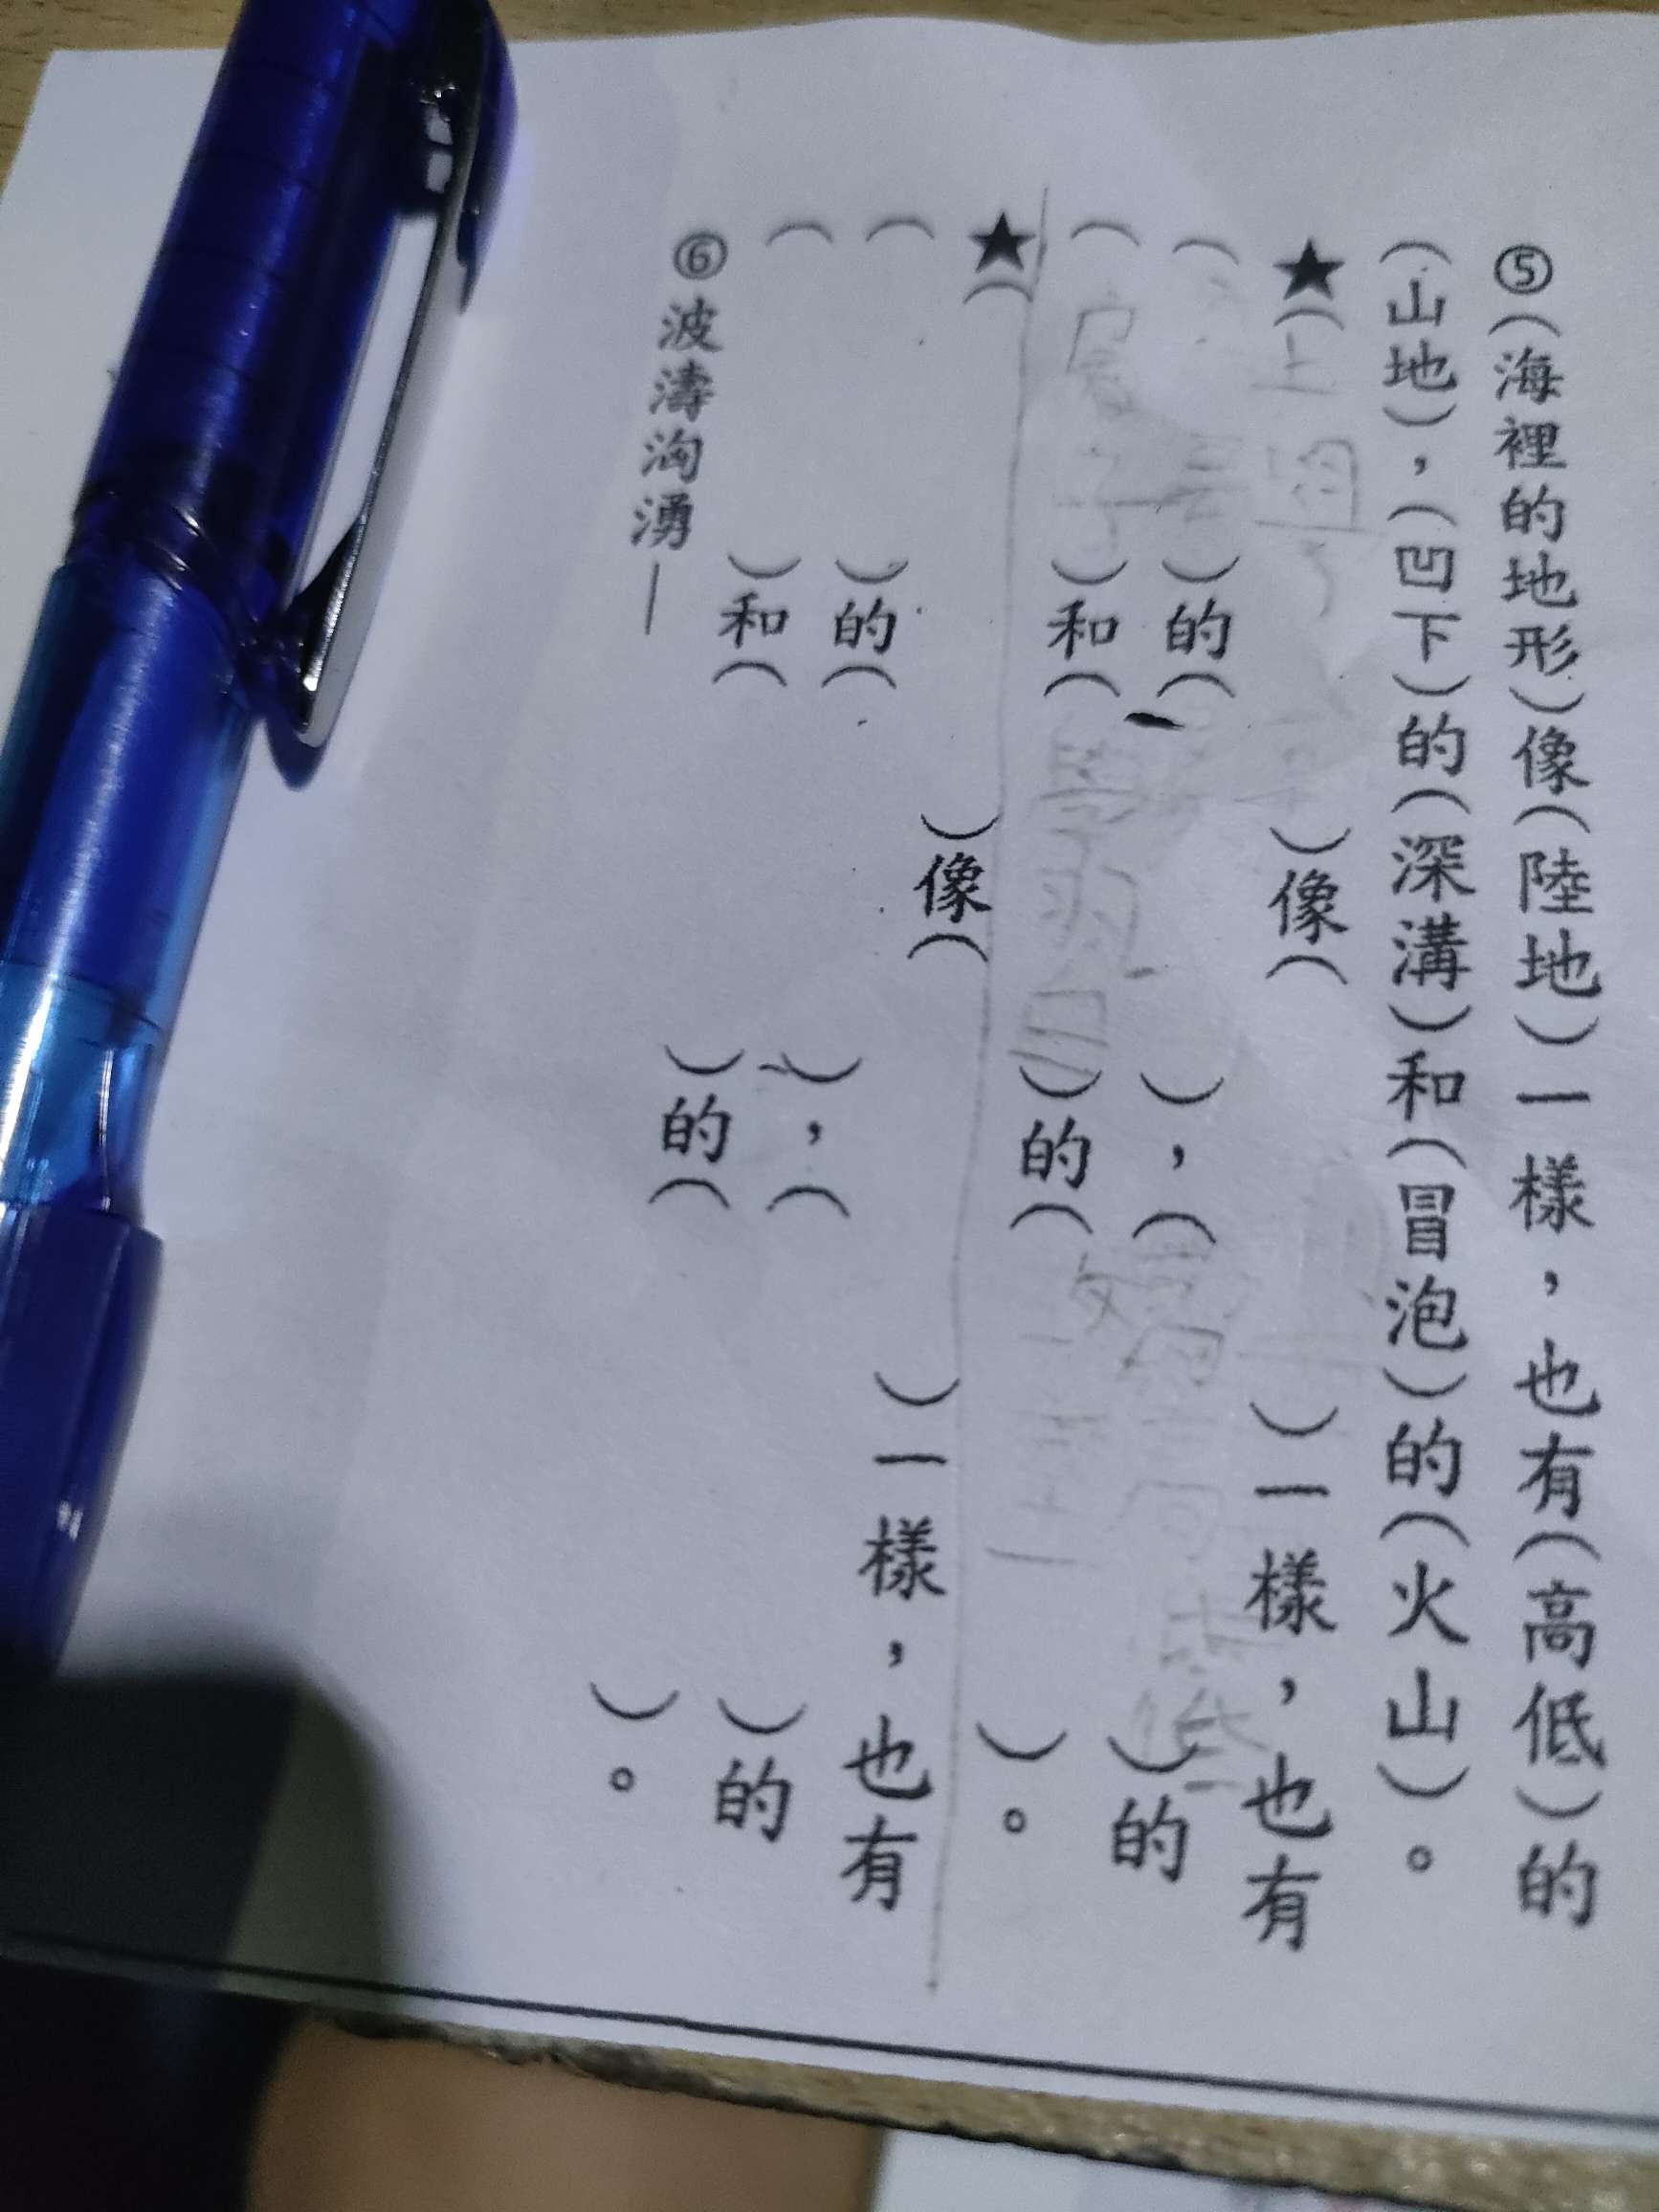 ⑤(海裡的地形)像(陸地)一樣，也有(高低)的
(山地)，(凹下)的(深溝)和(冒泡)的(火山)。
★(上學)像()一樣，也有
()的()，(高高低低)的
(房子)和()的()。
★()像()一樣，也有
()的()，()的
()和()的()。
⑥波濤洶湧—